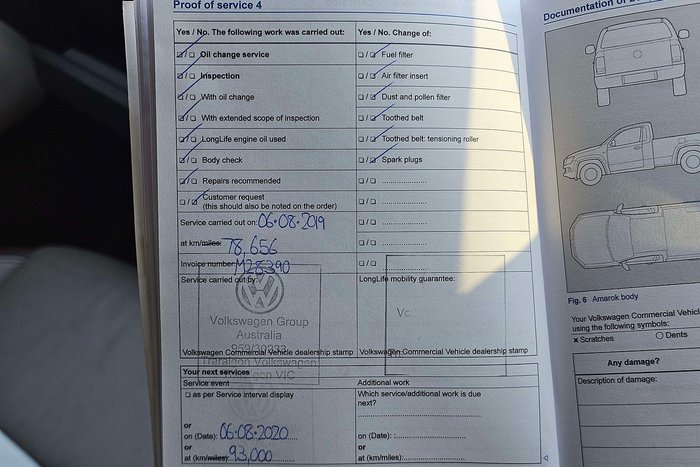 Proof of service 4
Yes / No. The following work was carried out:
Oil change service
Inspection
With oil change
With extended scope of inspection
LongLife engine oil used
Body check
Repairs recommended
Customer request
(this should also be noted on the order)
Service carried out on: 06·08·2019
at km/miles: 78,656
Invoice number: M28390
Service carried out by:
Volkswagen Group
Australia
959/30333
Traralgon Volkswagen
VIC
Volkswagen Commercial Vehicle dealership stamp
Yes / No. Change of:
Fuel filter
Air filter insert
Dust and pollen filter
Toothed belt
Toothed belt: tensioning roller
Spark plugs
LongLife mobility guarantee:
Vo.
Volkswagen Commercial Vehicle dealership stamp
Your next services
Service event
as per Service interval display
or
on (Date): 06·08·2020
or
at (km/miles): 93,000
Additional work
Which service/additional work is due
next?
on (Date):
or
at (km/miles):
Documentation of
Fig. 6 Amarok body
Your Volkswagen Commercial
using the following symbols:
x Scratches
O Dents
Any damage?
Description of damage: